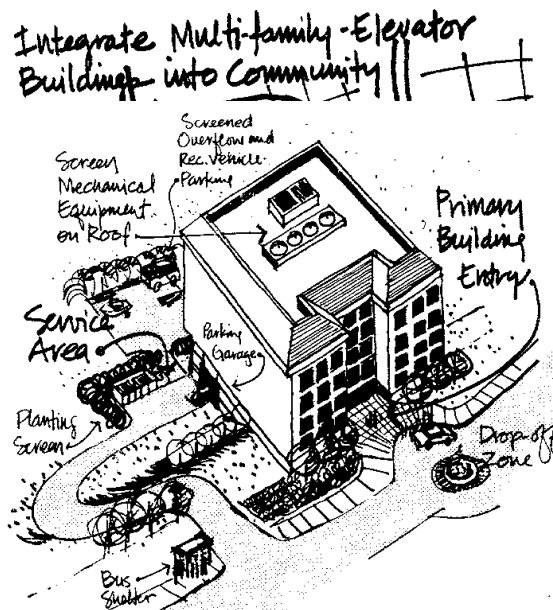 Integrate Multi-family-Elevator
Buildings into Community
Screened
Overflow and
Rec. Vehicle
Parking
Screen
Mechanical
Equipment
on Roof
Primary
Building
Entry
Service
Area
Parking
Garage
Planting
Screen
Drop-off
Zone
Bus
Shelter